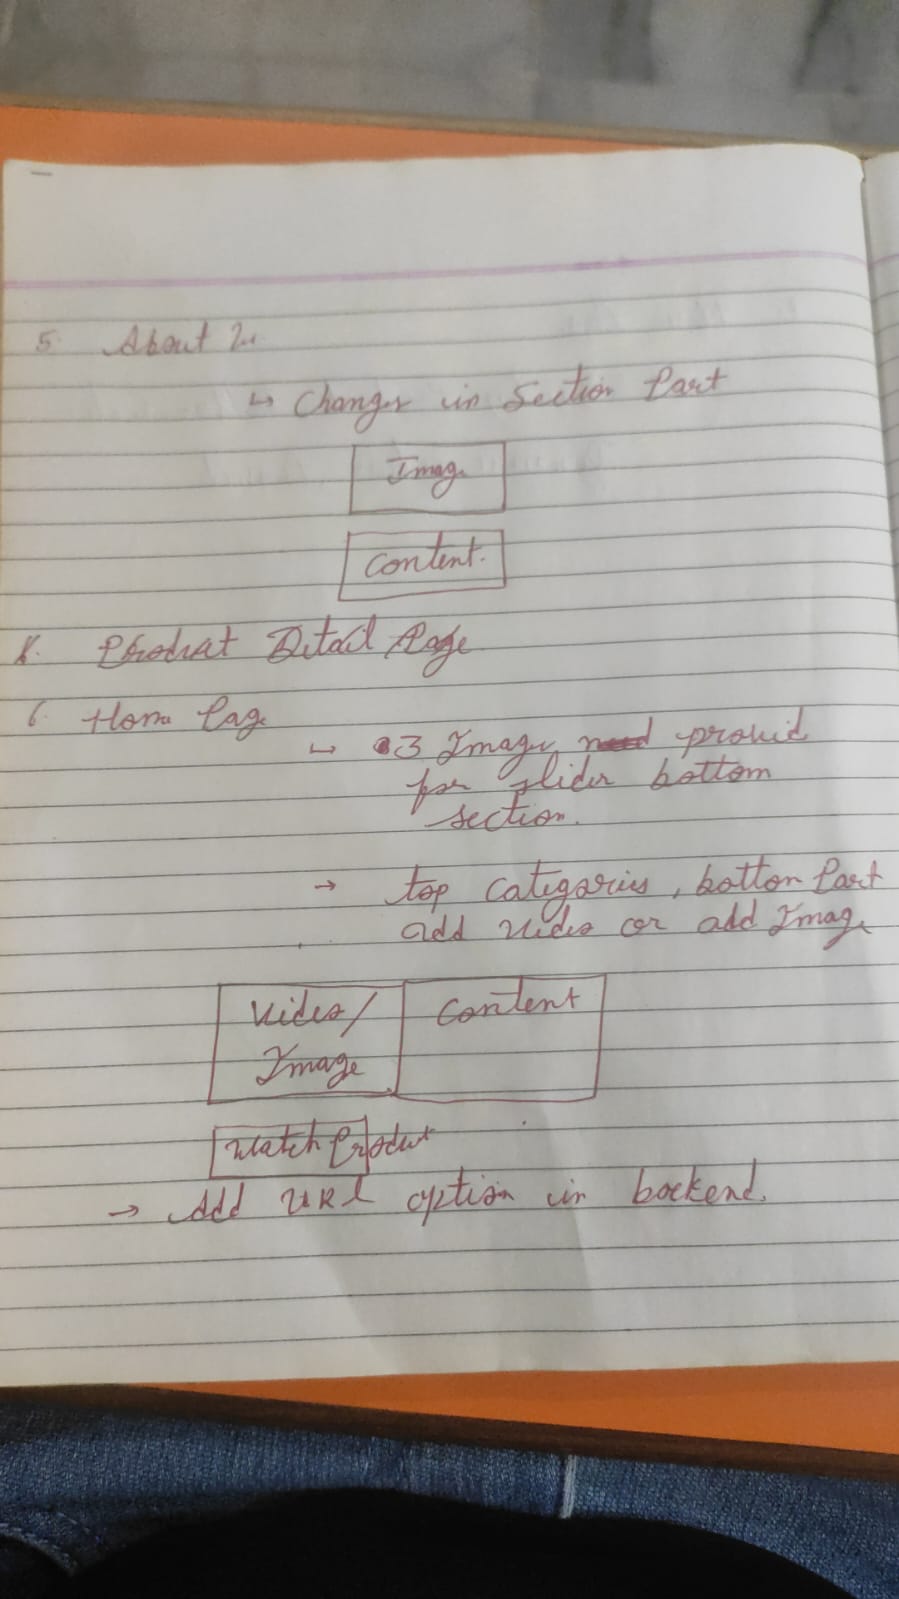 5. About Us
↳ Changes in Section Part
Image
Content.
Product Detail Page
6. Home Page
↳ 3 Image provid
for slider bottom
section.
→ top Categories, bottom Part
add video or add Image
Video/ Content
Image
Watch Product
→ Add URL option in backend.